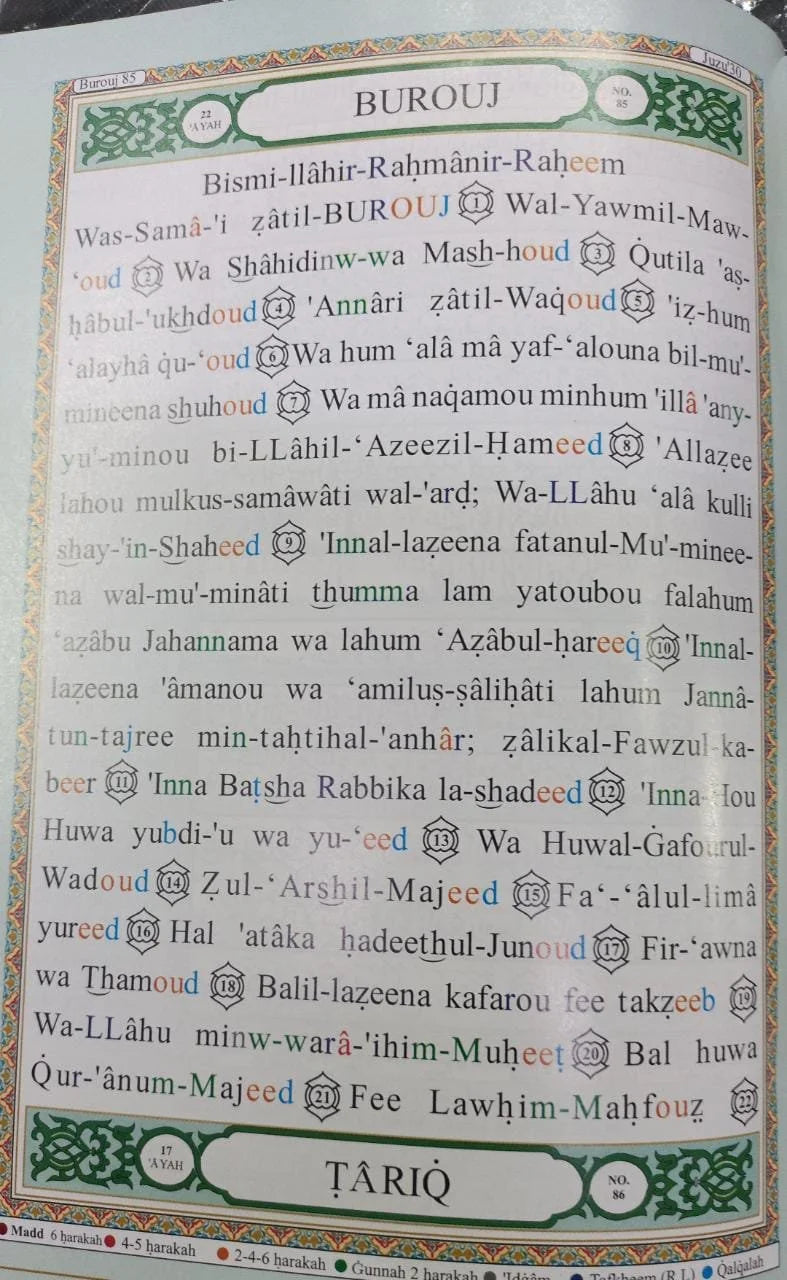 Burouj 85
Juzu'30
22 'AYAH
BUROUJ
NO. 85
Bismi-llâhir-Raḥmânir-Raḥeem
Was-Samâ-'i ẓâtil-BUROUJ ① Wal-Yawmil-Maw-
‘oud ② Wa Shâhidinw-wa Mash-houd ③ Q̇utila 'aṣ-
ḥâbul-'ukhdoud ④ 'Annâri ẓâtil-Waq̇oud ⑤ 'iẓ-hum
‘alayhâ q̇u-‘oud ⑥ Wa hum ‘alâ mâ yaf-‘alouna bil-mu'-
mineena shuhoud ⑦ Wa mâ naq̇amou minhum 'illâ 'any-
yu'-minou bi-LLâhil-‘Azeezil-Ḥameed ⑧ 'Allaẓee
lahou mulkus-samâwâti wal-'arḍ; Wa-LLâhu ‘alâ kulli
shay-'in-Shaheed ⑨ 'Innal-laẓeena fatanul-Mu'-minee-
na wal-mu'-minâti thumma lam yatoubou falahum
‘aẓâbu Jahannama wa lahum ‘Aẓâbul-ḥareeq̇ ⑩ 'Innal-
laẓeena 'âmanou wa ‘amiluṣ-ṣâliḥâti lahum Jannâ-
tun-tajree min-taḥtihal-'anhâr; ẓâlikal-Fawzul-ka-
beer ⑪ 'Inna Baṭsha Rabbika la-shadeed ⑫ 'Inna-Hou
Huwa yubdi-'u wa yu-‘eed ⑬ Wa Huwal-Ġafourul-
Wadoud ⑭ Ẓul-‘Arshil-Majeed ⑮ Fa‘-‘âlul-limâ
yureed ⑯ Hal 'atâka ḥadeethul-Junoud ⑰ Fir-‘awna
wa Thamoud ⑱ Balil-laẓeena kafarou fee takẓeeb ⑲
Wa-LLâhu minw-warâ-'ihim-Muḥeeṭ ⑳ Bal huwa
Q̇ur-'ânum-Majeed ㉑ Fee Lawḥim-Maḥfouz̤ ㉒
17 'AYAH
ṬÂRIQ̇
NO. 86
Madd 6 ḥarakah 4-5 ḥarakah 2-4-6 ḥarakah Ġunnah 2 ḥarakah 'Idġâm Tafkheem (R,L) Qalqalah